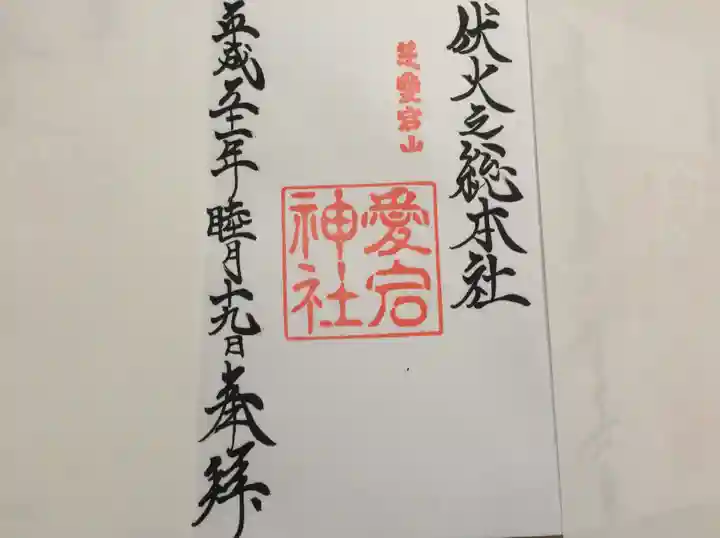 伏火之総本社
芝愛宕山
愛宕
神社
平成三十一年睦月十九日奉拝